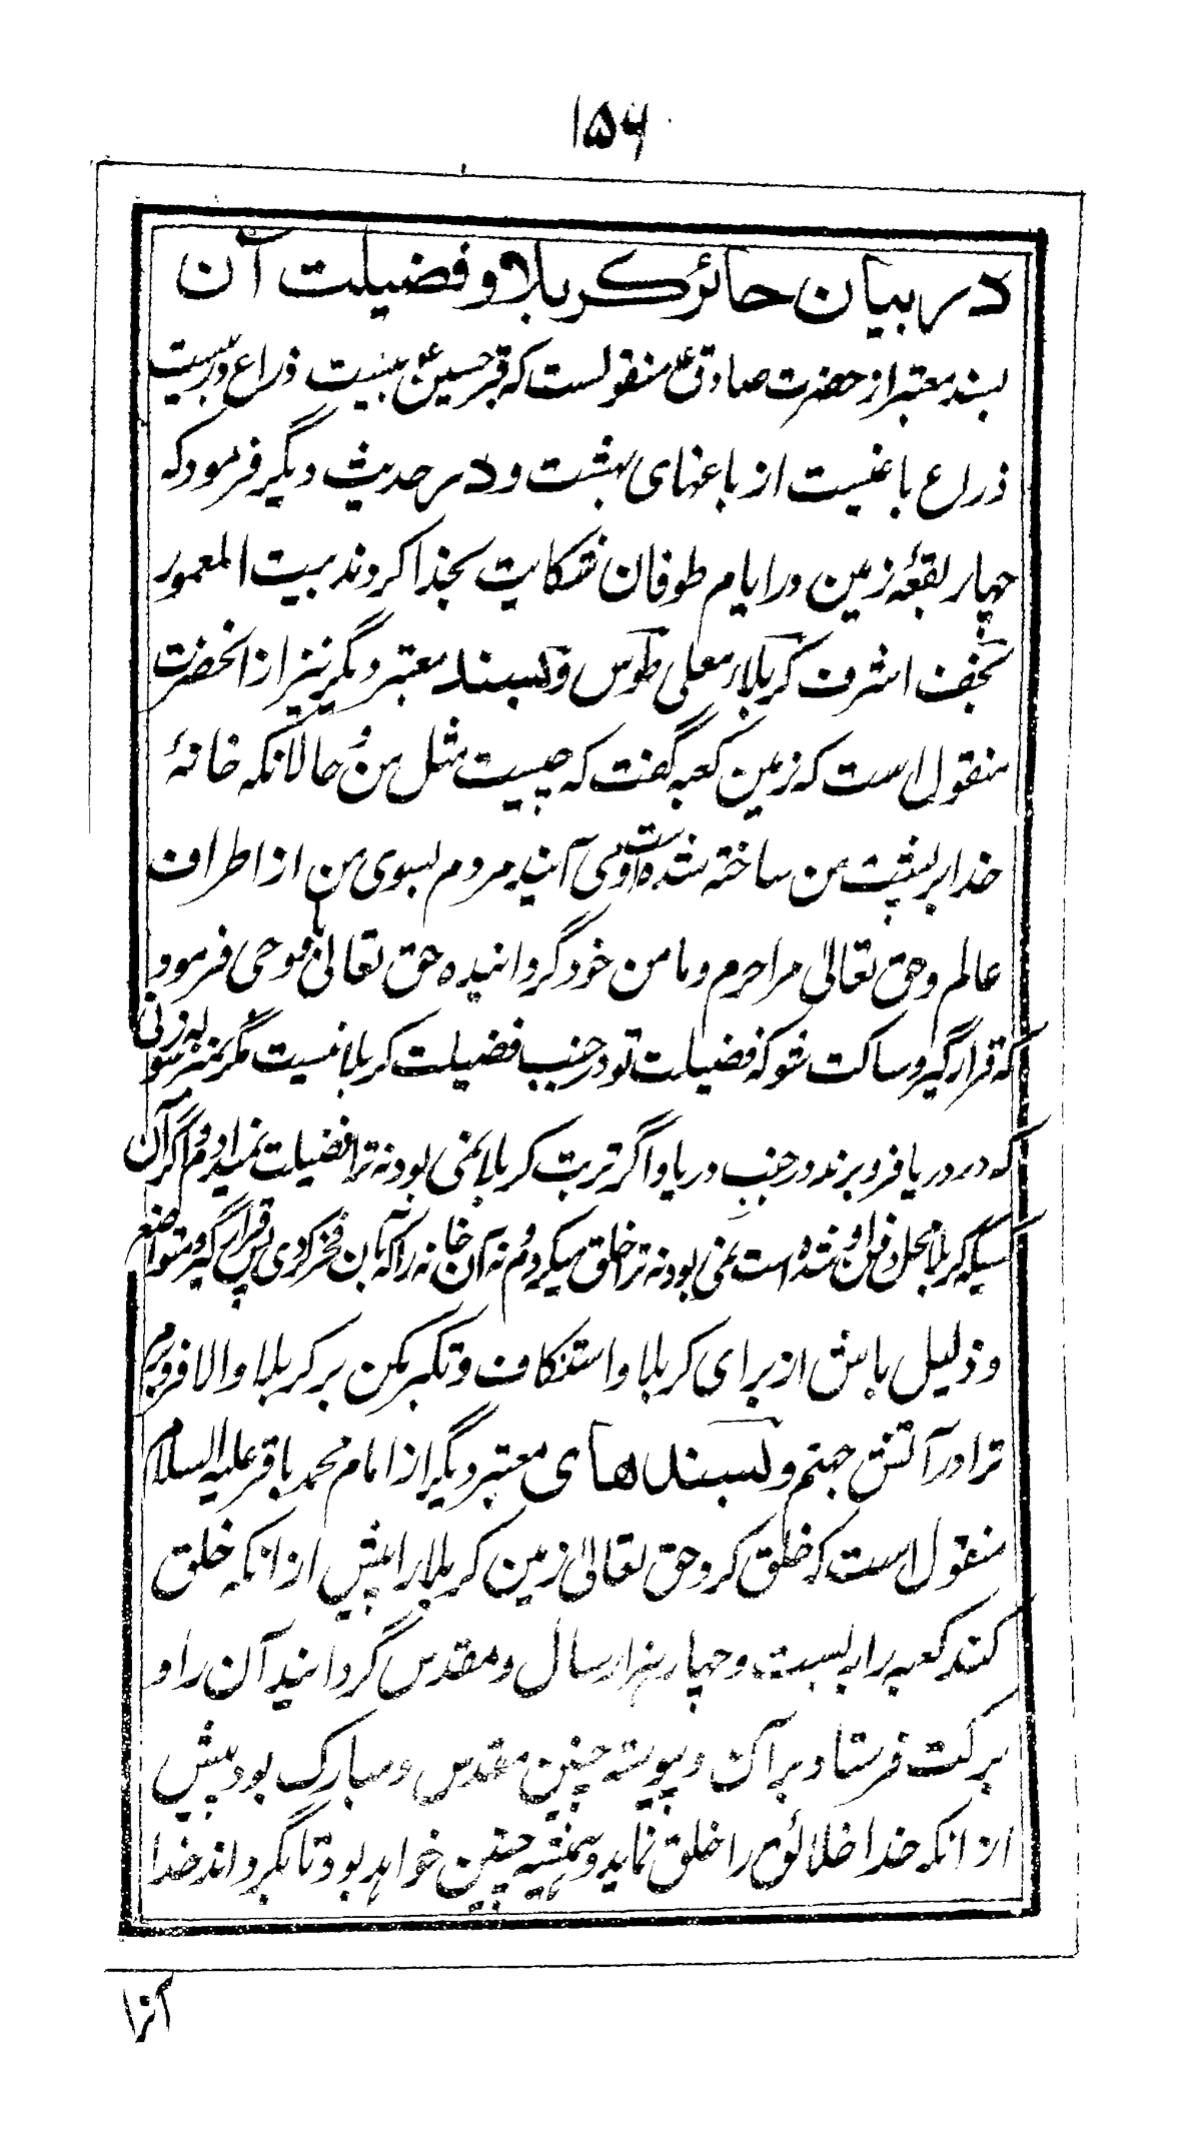 ۱۵۶
در بیان حائر کربلا و فضیلت آن
بسند معتبر از حضرت صادقؑ منقولست که قبر حسینؑ بیست ذراع در بیست
ذراع باغیست از باغهای بهشت و در حدیث دیگر فرمود که
چهار بقعۂ زمین در ایام طوفان شکایت بخدا کردند بیت المعمور
نجف اشرف کربلاء معلی طوس و بسند معتبر دیگر نیز از انحضرت
منقول است که زمین کعبه گفت که چیست مثل من و حالانکه خانۂ
خدا بر پشت من ساخته شده است و می آیند مردم بسوی من از اطراف
عالم و حق تعالی مرا حرم و مامن خود گردانیده حق تعالی باو وحی فرمود
که قرار گیر و ساکت شو که فضیلت تو در جنب فضیلت کربلا نیست مگر بمنزله سوزنی
که در دریا فرو برند در جنب دریا و اگر تربت کربلا نمی بود نه ترا فضیلت میدادم و اگر آن
کسیکه کربلا محل دفن او شده است نمی بود نه ترا خلق میکردم و نه آن خانه را که بآن فخر کردی پس قرار گیر و متواضع
و ذلیل باش از برای کربلا و استنکاف و تکبر مکن بر کربلا والا فرو برم
ترا در آتش جهنم و بسندهای معتبر دیگر از امام محمد باقر علیه السلام
منقول است که خلق کرد حق تعالی زمین کربلا را پیش از انکه خلق
کند کعبه را به بست و چهار هزار سال و مقدس گردانید آن را و
برکت فرستاد بر آن و پیوسته چنین مقدس و مبارک بود پیش
از انکه خدا خلائق را خلق نماید و همیشه چنین خواهد بود تا بگرداند خدا
آنرا